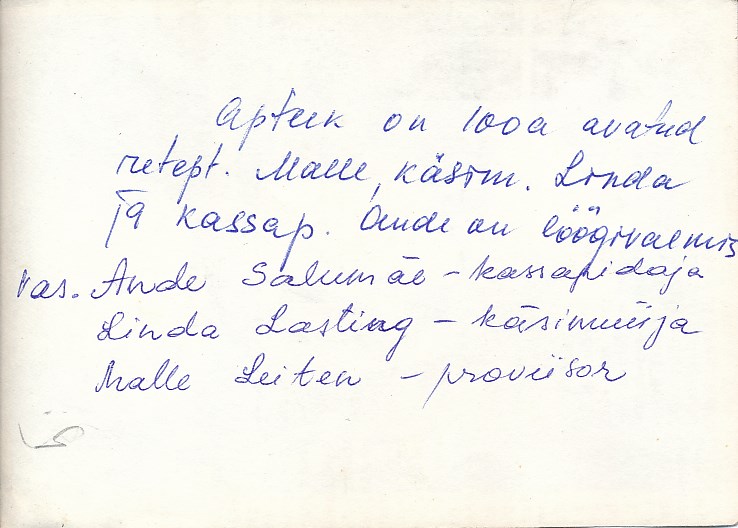 Apteek on 100a avatud
retept. Malle, käsim. Linda
ja kassap. Ande on löögivalmis
vas. Ande Salumäe - kassapidaja
Linda Lasting - käsimüüja
Malle Leiten - proviisor